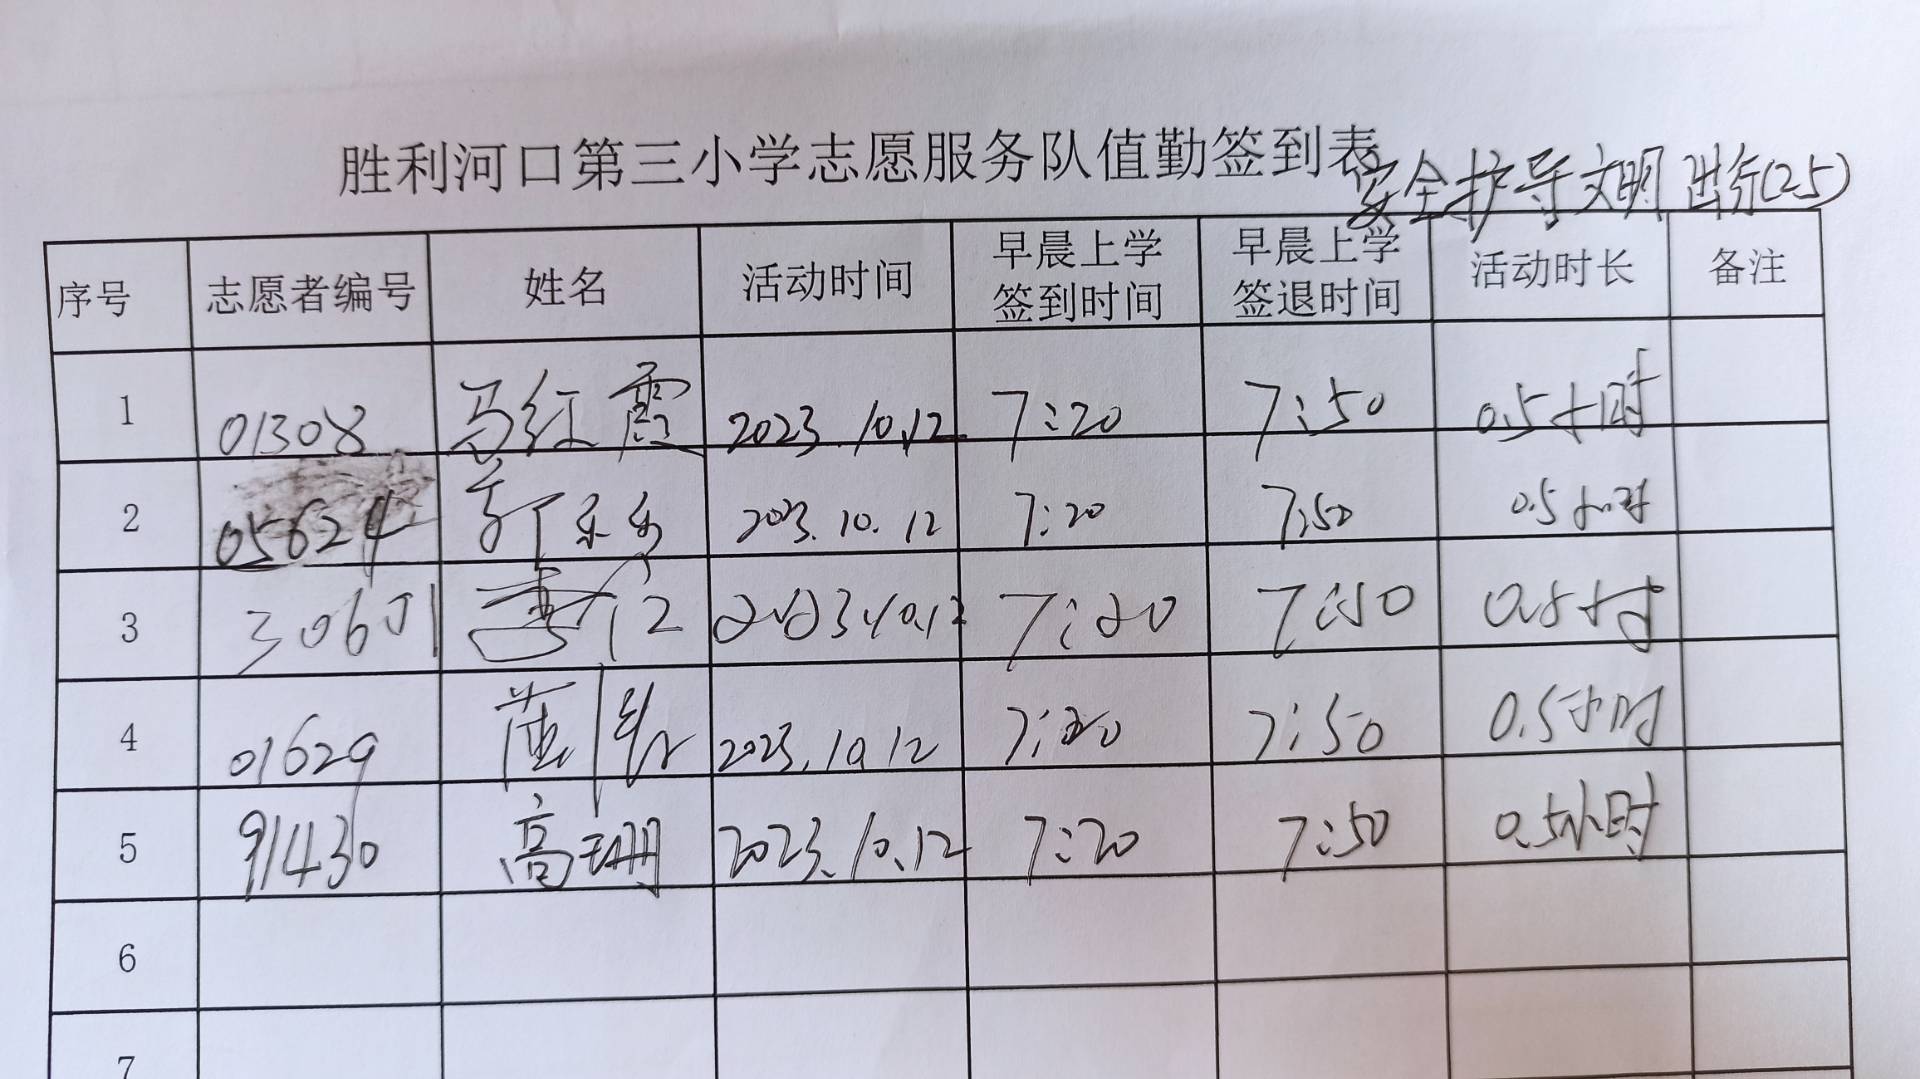 胜利河口第三小学志愿服务队值勤签到表
安全护导文明出行(25)
序号 志愿者编号 姓名 活动时间 早晨上学签到时间 早晨上学签退时间 活动时长 备注
1 01308 马红霞 2023.10.12 7:20 7:50 0.5小时
2 05624 2023.10.12 7:20 7:50 0.5小时
3 2023.10.12 7:20 7:50 0.5小时
4 01629 2023.10.12 7:20 7:50 0.5小时
5 91430 高珊 2023.10.12 7:20 7:50 0.5小时
6
7